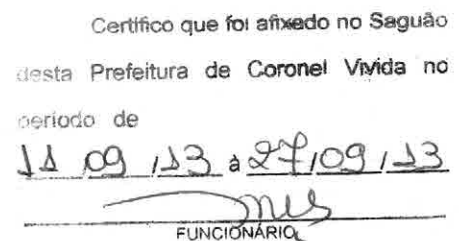 Certifico que foi afixado no Saguão
desta Prefeitura de Coronel Vivida no
período de
11 09 / 13 à 27 / 09 / 13
FUNCIONÁRIO